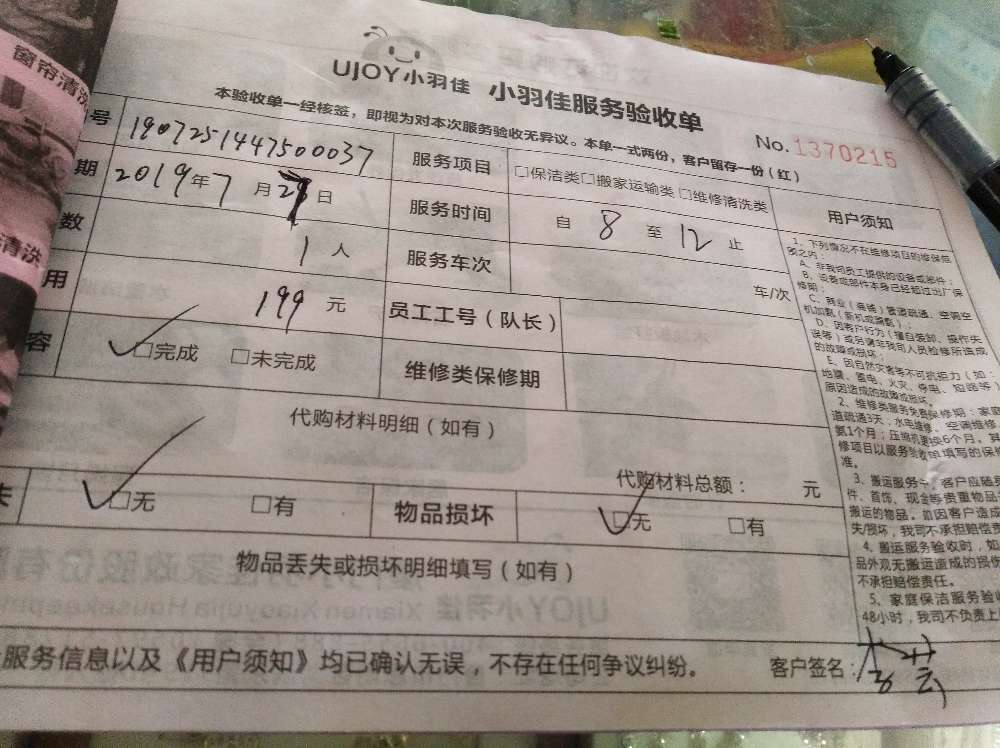 窗帘清洗
清洗
UJOY小羽佳 小羽佳服务验收单
本验收单一经核签，即视为对本次服务验收无异议。本单一式两份，客户留存一份（红）
No.1370215
号 190725144750037 服务项目 □保洁类□搬家运输类 □维修清洗类
期 2019年7月 日 服务时间 自 8 至 12 止
数 1 人 服务车次 车/次
用 199 元 员工工号（队长）
容 □完成 □未完成 维修类保修期
代购材料明细（如有）
代购材料总额： 元
失 □无 □有 物品损坏 □无 □有
物品丢失或损坏明细填写（如有）
服务信息以及《用户须知》均已确认无误，不存在任何争议纠纷。 客户签名：
用户须知
1、下列情况不在维修项目的维保范
围之内：
A、非我司员工提供的设备或部件；
B、设备或部件本身已经超过出厂保
修期；
C、商业（商铺）管道疏通、空调空
机加氨（新机或漏氨）；
D、因客户行为（擅自装卸、操作失
误等）或另请非我司人员检修所造成
的故障或损坏；
E、因自然灾害等不可抗拒力（如：
地震、雷电、火灾、停电、短路等
原因造成的故障或损坏。
2、维修类服务免费保修期：家庭
道疏通3天；水电维修、空调维修
氨1个月；压缩机更换6个月。其
修项目以服务验收单填写的保修
准。
3、搬运服务中，客户应随身
件、首饰、现金等贵重物品
搬运的物品。如因客户造成
失/损坏，我司不承担赔偿责
4、搬运服务验收时，如
品外观无搬运造成的损伤
不承担赔偿责任。
5、家庭保洁服务验收
48小时，我司不负责上